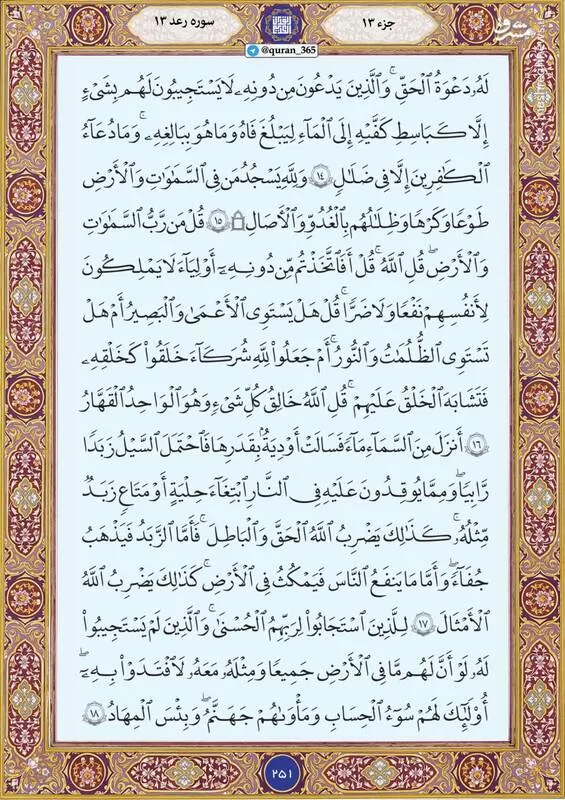 جزء ۱۳
سوره رعد ۱۳
مشرق
@quran_365
لَهُۥ دَعۡوَةُ ٱلۡحَقِّۚ وَٱلَّذِينَ يَدۡعُونَ مِن دُونِهِۦ لَا يَسۡتَجِيبُونَ لَهُم بِشَيۡءٍ
إِلَّا كَبَٰسِطِ كَفَّيۡهِ إِلَى ٱلۡمَآءِ لِيَبۡلُغَ فَاهُ وَمَا هُوَ بِبَٰلِغِهِۦۚ وَمَا دُعَآءُ
ٱلۡكَٰفِرِينَ إِلَّا فِي ضَلَٰلٖ ۝١٤ وَلِلَّهِۤ يَسۡجُدُۤ مَن فِي ٱلسَّمَٰوَٰتِ وَٱلۡأَرۡضِ
طَوۡعٗا وَكَرۡهٗا وَظِلَٰلُهُم بِٱلۡغُدُوِّ وَٱلۡأٓصَالِ۩ ۝١٥ قُلۡ مَن رَّبُّ ٱلسَّمَٰوَٰتِ
وَٱلۡأَرۡضِ قُلِ ٱللَّهُۚ قُلۡ أَفَٱتَّخَذۡتُم مِّن دُونِهِۦٓ أَوۡلِيَآءَ لَا يَمۡلِكُونَ
لِأَنفُسِهِمۡ نَفۡعٗا وَلَا ضَرّٗاۚ قُلۡ هَلۡ يَسۡتَوِي ٱلۡأَعۡمَىٰ وَٱلۡبَصِيرُ أَمۡ هَلۡ
تَسۡتَوِي ٱلظُّلُمَٰتُ وَٱلنُّورُۗ أَمۡ جَعَلُواْ لِلَّهِ شُرَكَآءَ خَلَقُواْ كَخَلۡقِهِۦ
فَتَشَٰبَهَ ٱلۡخَلۡقُ عَلَيۡهِمۡۚ قُلِ ٱللَّهُ خَٰلِقُ كُلِّ شَيۡءٖ وَهُوَ ٱلۡوَٰحِدُ ٱلۡقَهَّٰرُ
۝١٦ أَنزَلَ مِنَ ٱلسَّمَآءِ مَآءٗ فَسَالَتۡ أَوۡدِيَةُۢ بِقَدَرِهَا فَٱحۡتَمَلَ ٱلسَّيۡلُ زَبَدٗا
رَّابِيٗاۖ وَمِمَّا يُوقِدُونَ عَلَيۡهِ فِي ٱلنَّارِ ٱبۡتِغَآءَ حِلۡيَةٍ أَوۡ مَتَٰعٖ زَبَدٞ
مِّثۡلُهُۥۚ كَذَٰلِكَ يَضۡرِبُ ٱللَّهُ ٱلۡحَقَّ وَٱلۡبَٰطِلَۚ فَأَمَّا ٱلزَّبَدُ فَيَذۡهَبُ
جُفَآءٗۖ وَأَمَّا مَا يَنفَعُ ٱلنَّاسَ فَيَمۡكُثُ فِي ٱلۡأَرۡضِۚ كَذَٰلِكَ يَضۡرِبُ ٱللَّهُ
ٱلۡأَمۡثَالَ ۝١٧ لِلَّذِينَ ٱسۡتَجَابُواْ لِرَبِّهِمُ ٱلۡحُسۡنَىٰۚ وَٱلَّذِينَ لَمۡ يَسۡتَجِيبُواْ
لَهُۥ لَوۡ أَنَّ لَهُم مَّا فِي ٱلۡأَرۡضِ جَمِيعٗا وَمِثۡلَهُۥ مَعَهُۥ لَٱفۡتَدَوۡاْ بِهِۦٓۚ
أُوْلَٰٓئِكَ لَهُمۡ سُوٓءُ ٱلۡحِسَابِ وَمَأۡوَىٰهُمۡ جَهَنَّمُۖ وَبِئۡسَ ٱلۡمِهَادُ ۝١٨
۲۵۱